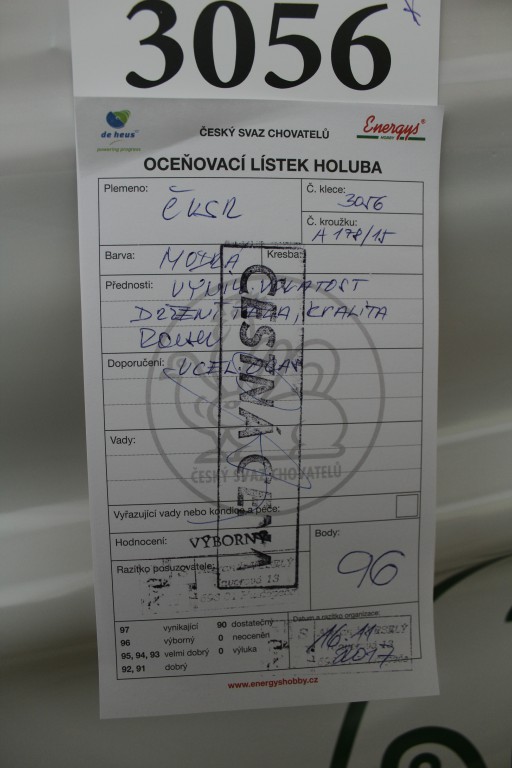 3056
de heus
powering progress
ČESKÝ SVAZ CHOVATELŮ
Energys®
HOBBY
OCEŇOVACÍ LÍSTEK HOLUBA
Plemeno:
ČKSR
Č. klece:
3056
Č. kroužku:
A 178/15
Barva: MODRÁ
Kresba:
Přednosti: VYNIK. VOLATOST
DRŽENÍ TĚLA, KVALITA
ROUSU
Doporučení:
ČESTNÁ CENA
Vady:
ČESKÝ SVAZ CHOVATELŮ
Vyřazující vady nebo kondice a péče:
Hodnocení: VÝBORNÝ
Body:
96
Razítko posuzovatele:
97 vynikající 90 dostatečný
96 výborný 0 neoceněn
95, 94, 93 velmi dobrý 0 výluka
92, 91 dobrý
Datum a razítko organizace:
16. 11.
2017
www.energyshobby.cz